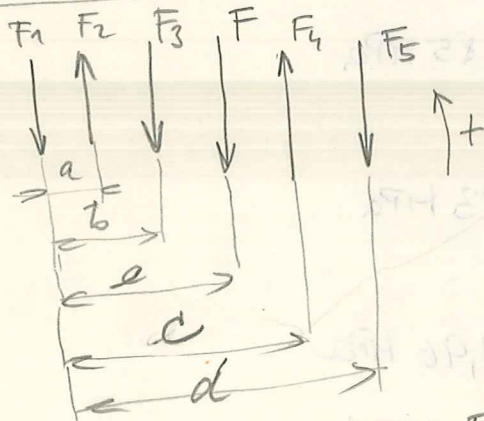 F1 F2 F3 F F4 F5
+
a
b
e
c
d